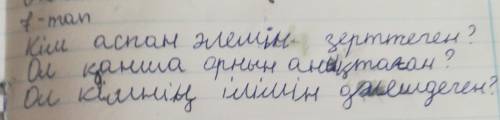 7-тап
Кім аспан әлемін зерттеген?
Ол қанша орнын анықтаған?
Ол кімнің ілімін дәлелдеген?